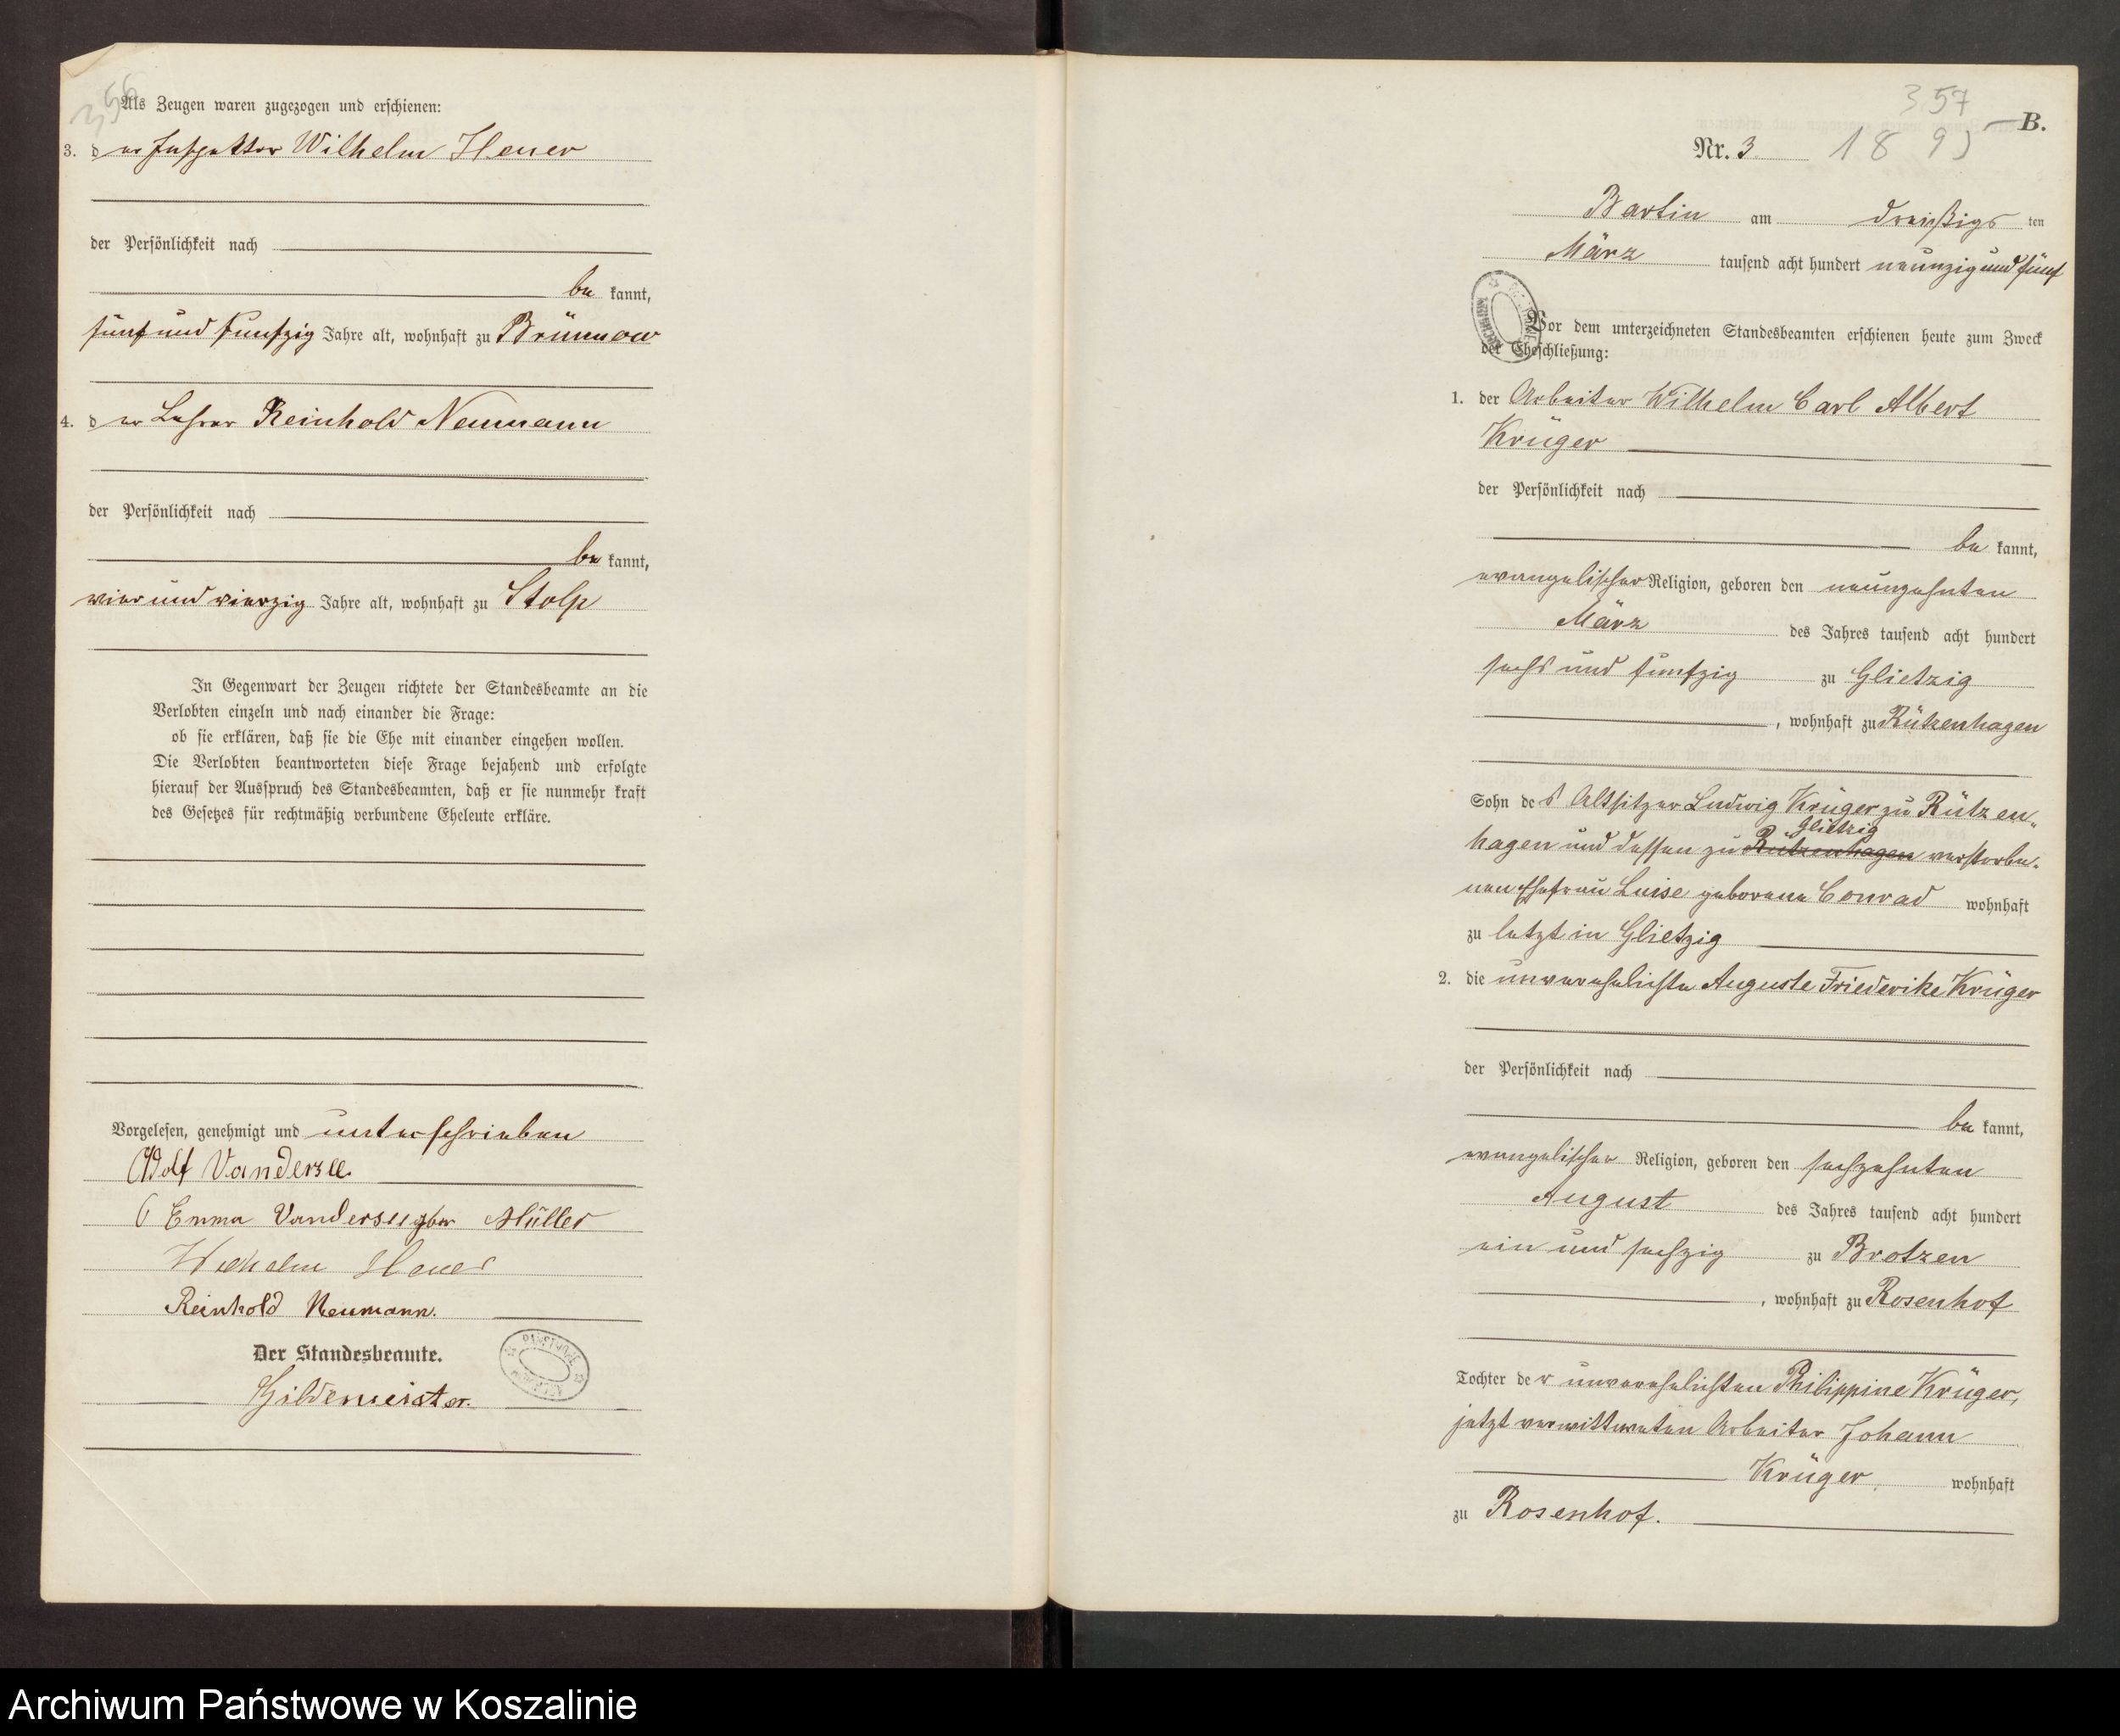 356
Als Zeugen waren zugezogen und erschienen:
3. der Inspektor Wilhelm Heuer
der Persönlichkeit nach
be kannt,
fünf und funfzig Jahre alt, wohnhaft zu Brünnow
4. der Lehrer Reinhold Neumann
der Persönlichkeit nach
be kannt,
vier und vierzig Jahre alt, wohnhaft zu Stolp
In Gegenwart der Zeugen richtete der Standesbeamte an die
Verlobten einzeln und nach einander die Frage:
ob sie erklären, daß sie die Ehe mit einander eingehen wollen.
Die Verlobten beantworteten diese Frage bejahend und erfolgte
hierauf der Ausspruch des Standesbeamten, daß er sie nunmehr kraft
des Gesetzes für rechtmäßig verbundene Eheleute erkläre.
Vorgelesen, genehmigt und unterschrieben
Adolf Vandersee
Emma Vandersee geb. Müller
Wilhelm Heuer
Reinhold Neumann.
Der Standesbeamte.
Gildemeister.
357
B.
Nr. 3 1895
Bartin am dreißigs ten
März tausend acht hundert neunzig und fünf
Vor dem unterzeichneten Standesbeamten erschienen heute zum Zweck
der Eheschließung:
1. der Arbeiter Wilhelm Carl Albert
Krüger
der Persönlichkeit nach
be kannt,
evangelischer Religion, geboren den neunzehnten
März des Jahres tausend acht hundert
sechs und funfzig zu Glietzig
, wohnhaft zu Rützenhagen
Sohn des Altsitzer Ludwig Krüger zu Rützen-
Glietzig
hagen und dessen zu Rützenhagen verstorbe-
nen Ehefrau Luise geborene Conrad wohnhaft
zu letzt in Glietzig
2. die unverehelichte Auguste Friederike Krüger
der Persönlichkeit nach
be kannt,
evangelischer Religion, geboren den sechzehnten
August des Jahres tausend acht hundert
ein und sechzig zu Brotzen
, wohnhaft zu Rosenhof
Tochter der unverehelichten Philippine Krüger,
jetzt verwittweten Arbeiter Johann
Krüger, wohnhaft
zu Rosenhof.
Archiwum Państwowe w Koszalinie